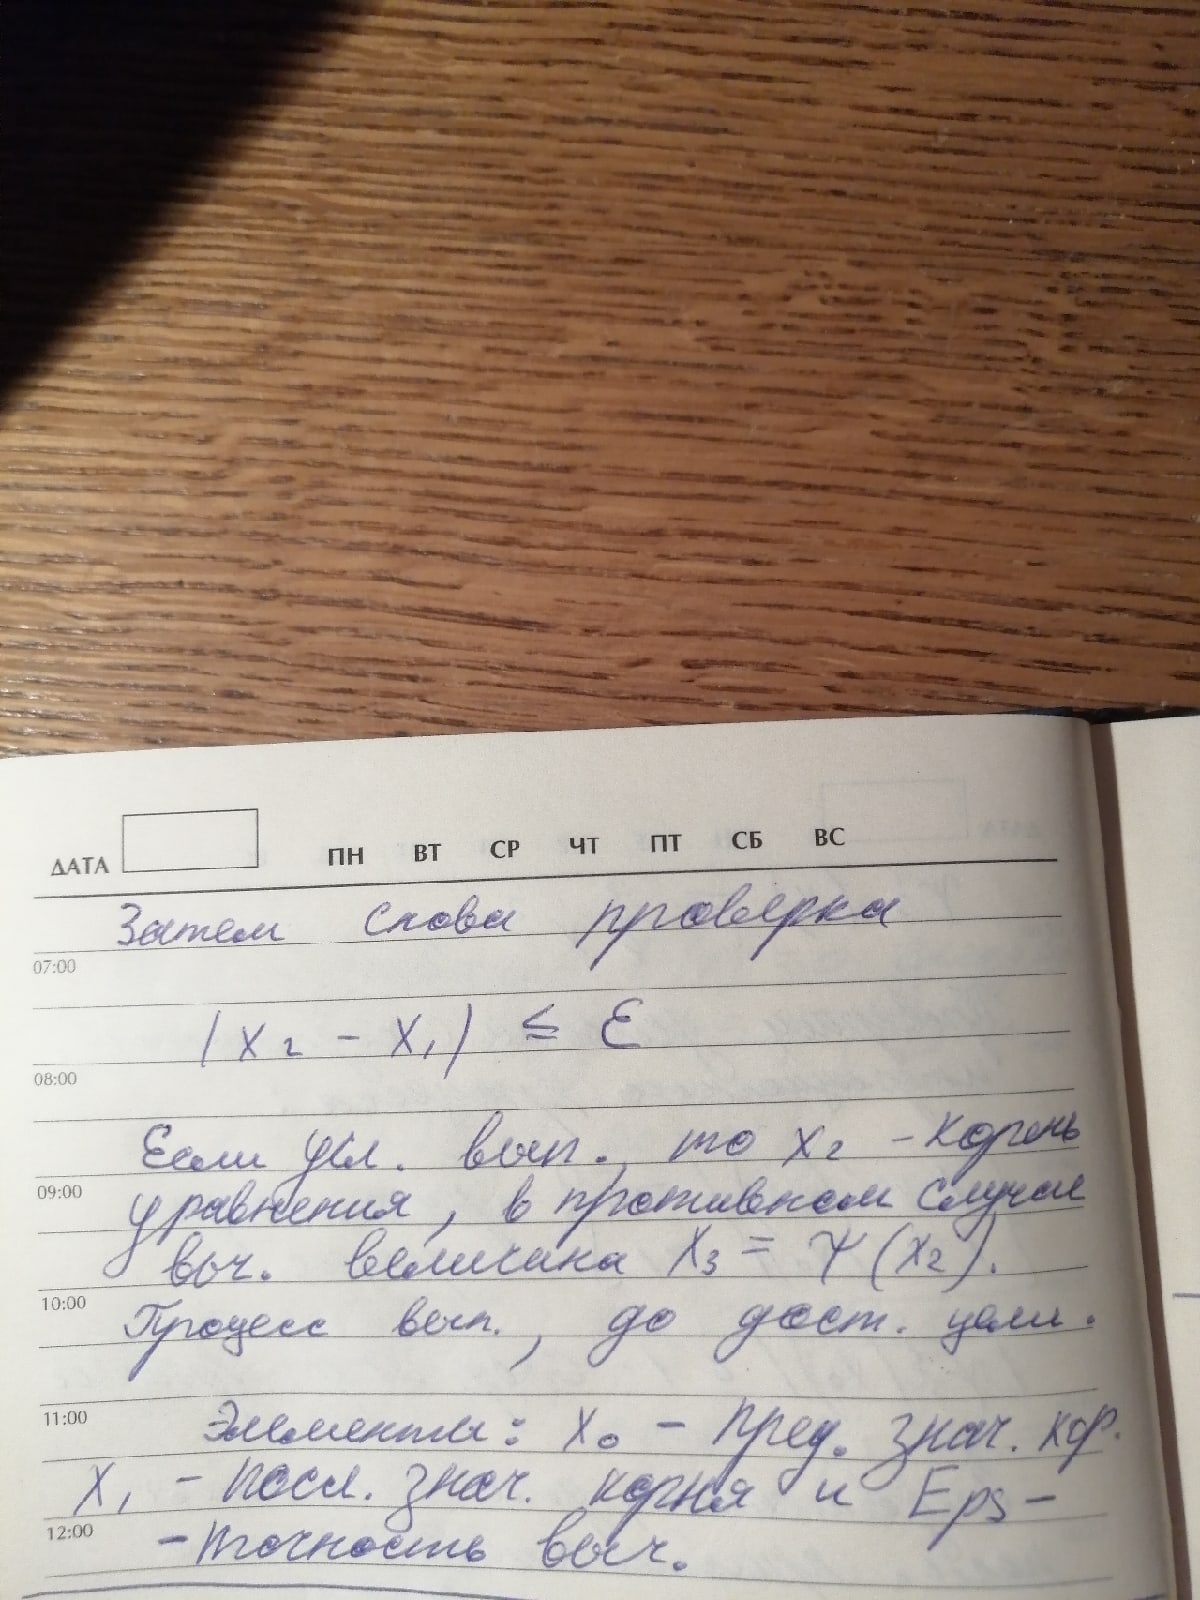 ДАТА ПН ВТ СР ЧТ ПТ СБ ВС
Затем снова проверка
07:00
|x₂ - x₁| ≤ ε
08:00
Если усл. вып., то x₂ - корень
09:00
уравнения, в противном случае
выч. величина x₃ = Ψ(x₂).
10:00
Процесс вып., до дост. цели.
11:00
Элементы: x₀ - пред. знач. кор.
x₁ - посл. знач. корня и Eps -
12:00
- точность выч.